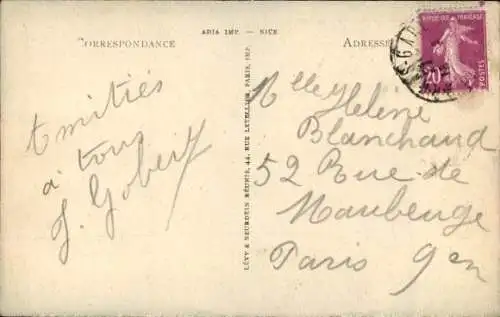 ARIA IMP. — NICE
CORRESPONDANCE
ADRESSE
REPUBLIQUE FRANÇAISE
20c
POSTES
Amitiés
à tous
J Gobert
LÉVY & NEURDEIN RÉUNIS, 44, RUE LETELLIER, PARIS, IMP.
Mlle Helene
Blanchaud
52 Rue de
Maubeuge
Paris 9en